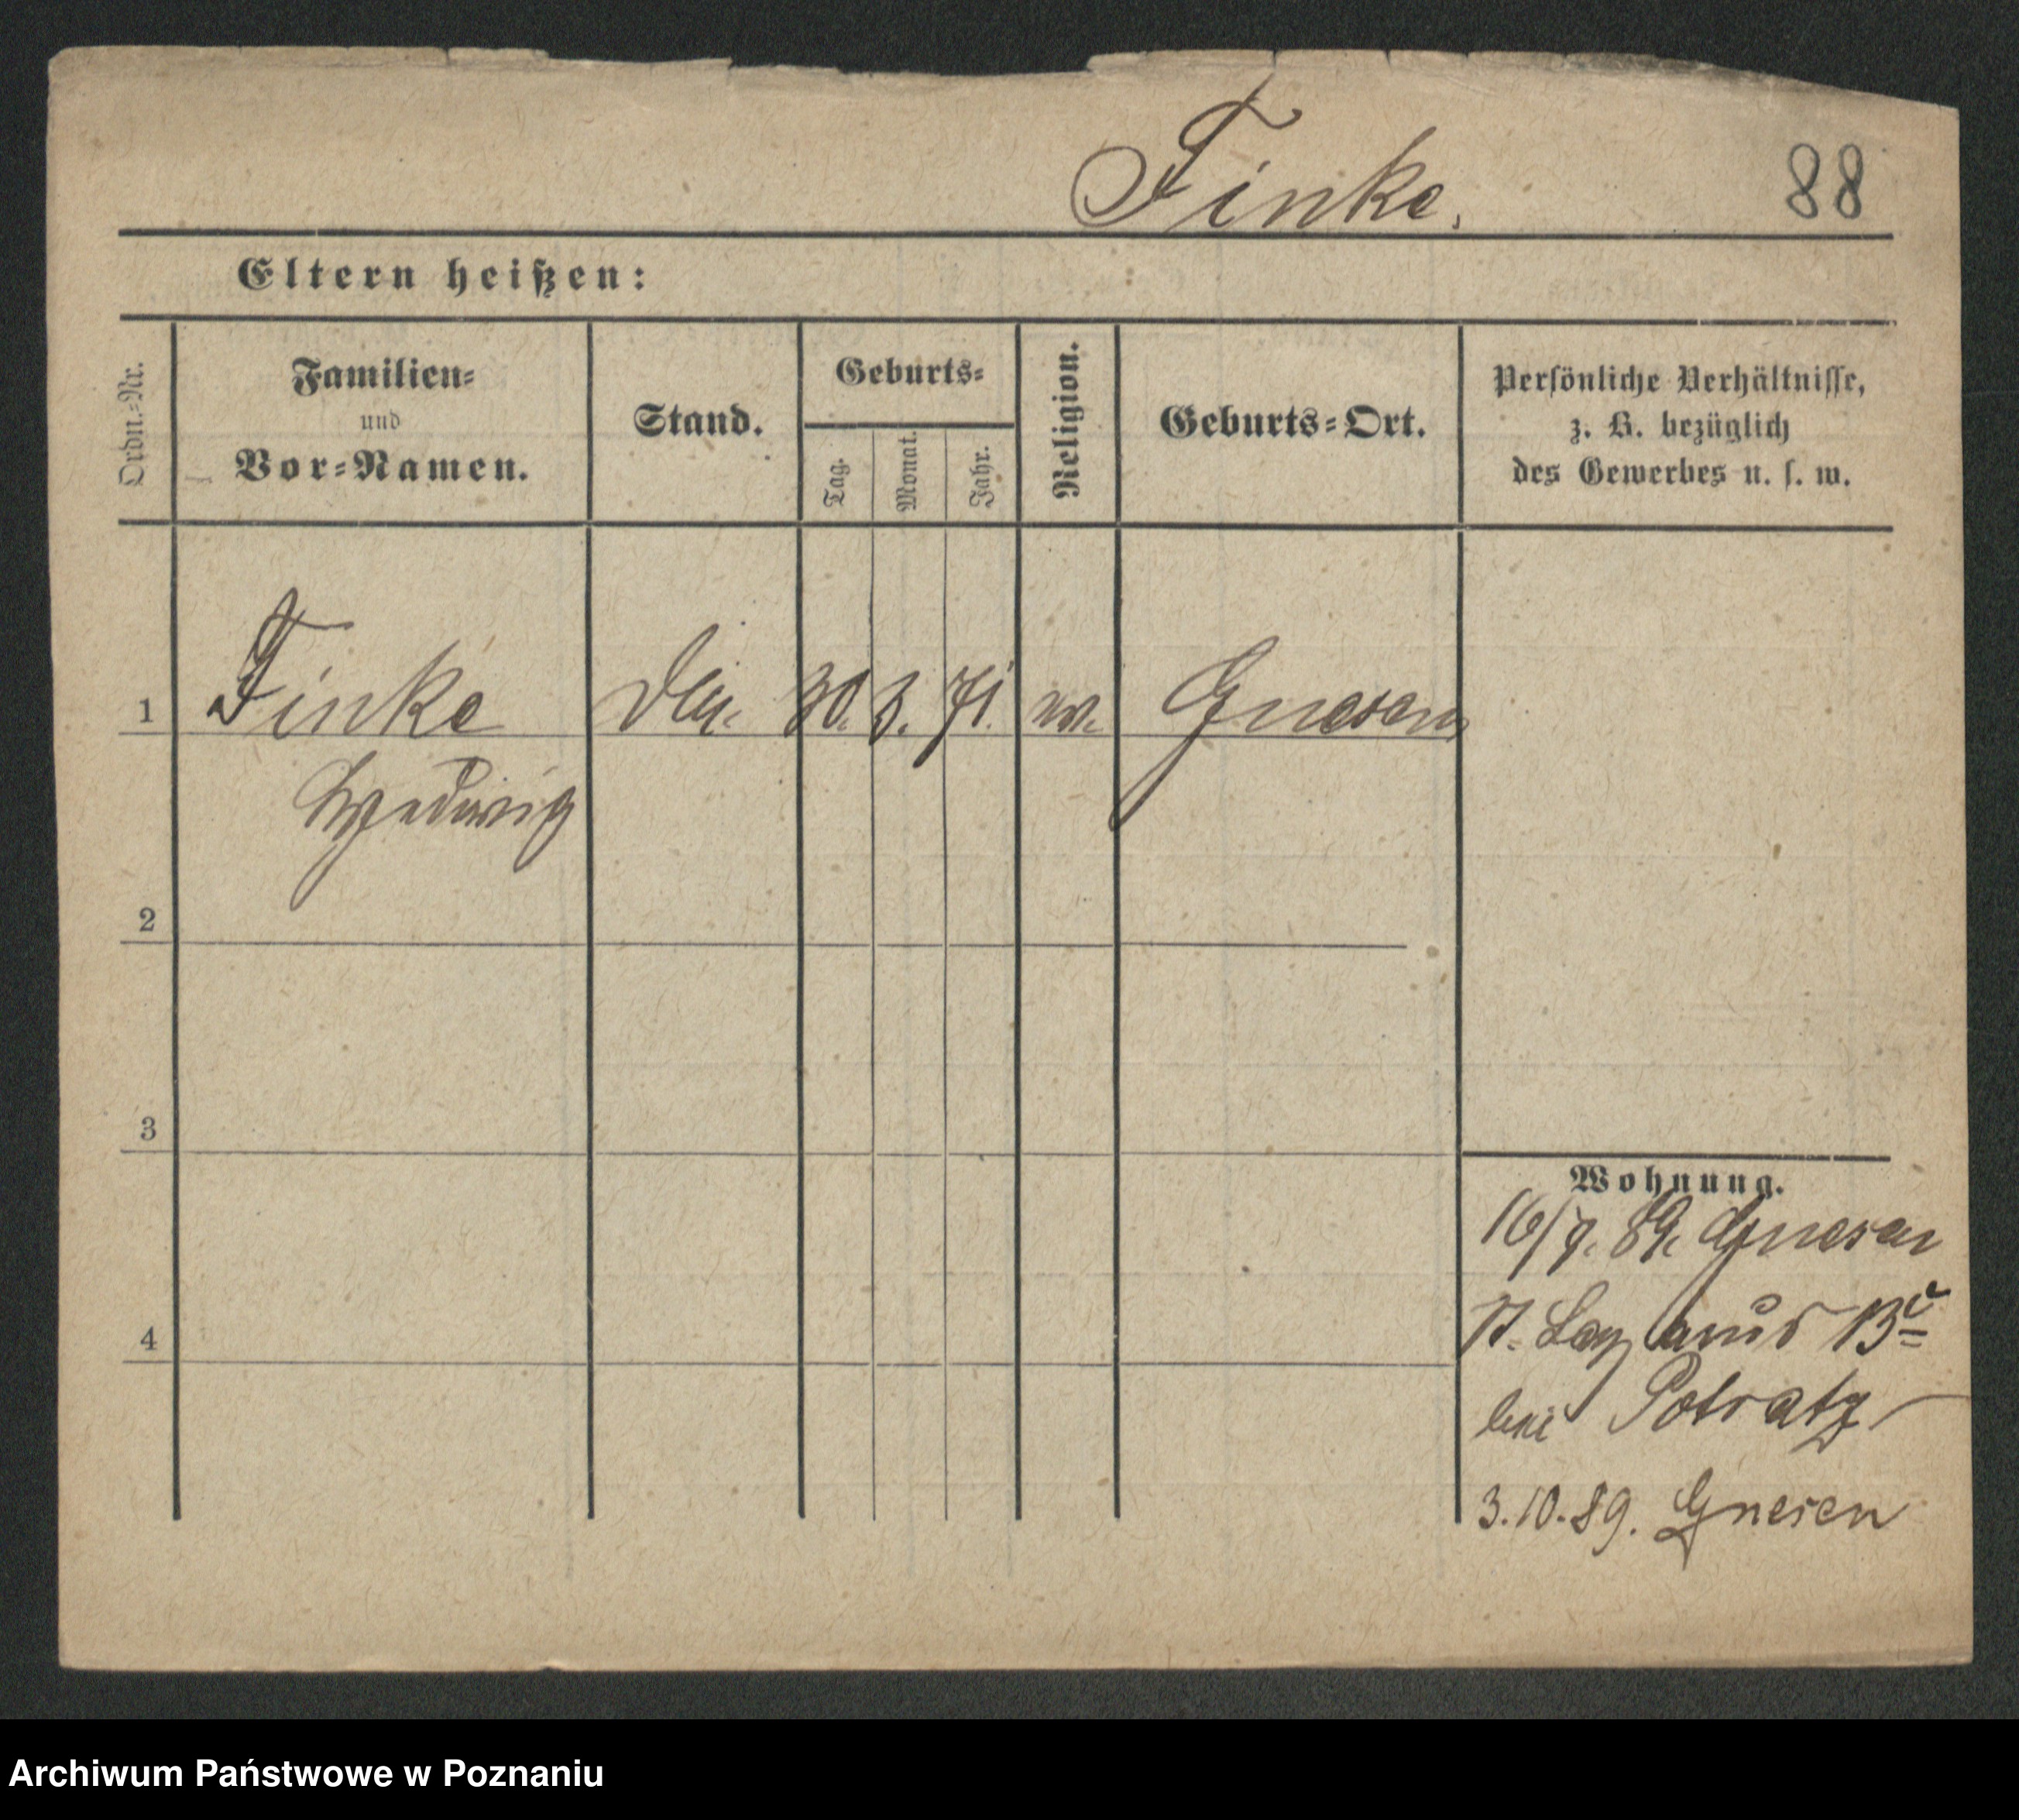 Finke.
88
Eltern heißen:
Ordn.-Nr.
Familien-
und
Vor-Namen.
Stand.
Geburts-
Tag.
Monat.
Jahr.
Religion.
Geburts-Ort.
Persönliche Verhältnisse,
z. B. bezüglich
des Gewerbes u. s. w.
1 Finke 30. 3. 71. Gnesen
Hedwig
2
3
4
Wohnung.
16/9. 89. Gnesen
St. Lazarus 13
bei Potratz
3.10.89. Gnesen
Archiwum Państwowe w Poznaniu